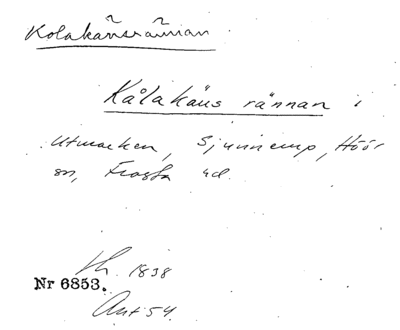 Kolakänsrännan
Kålakäus rännan i
Utmarken, Sjunnerup, Höör
sn, Frosta hd.
1838
Nr 6853.
Ant 54